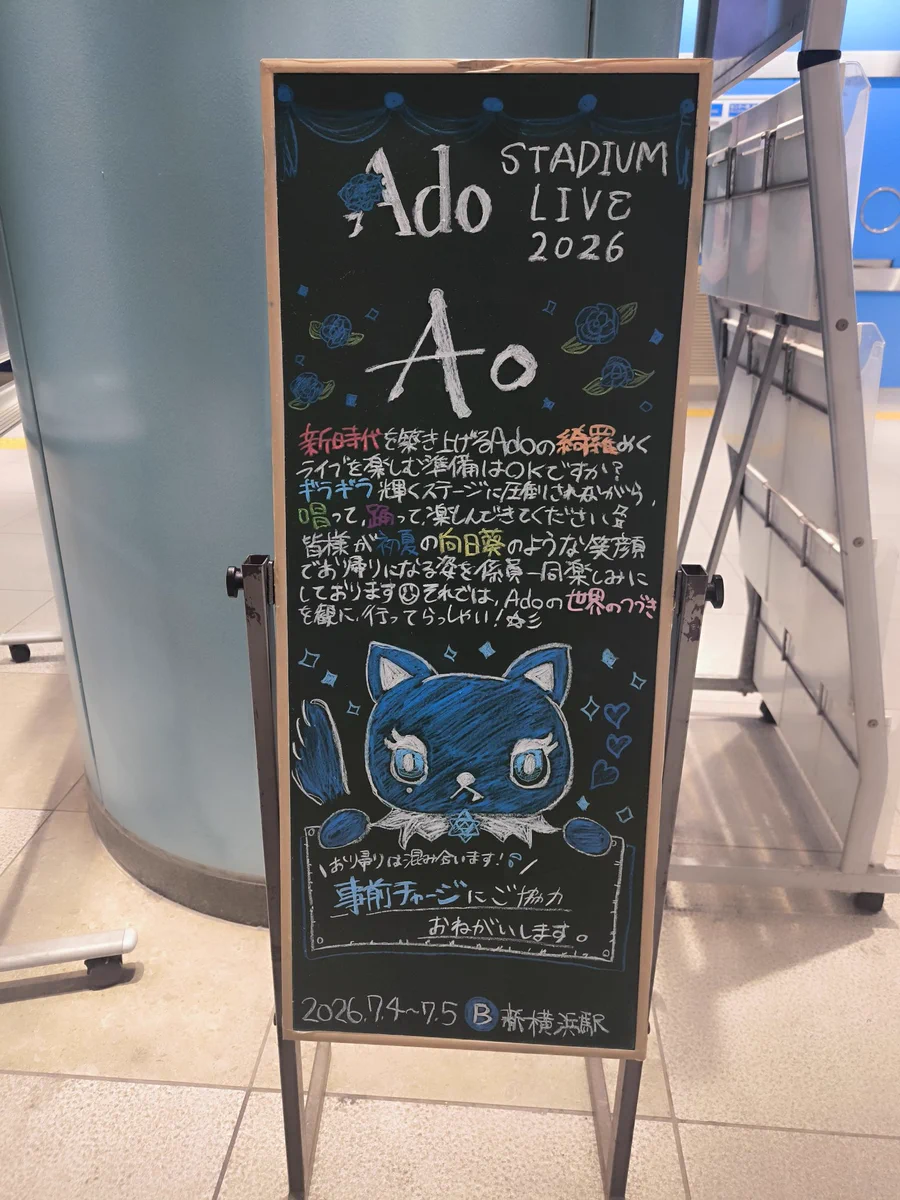 Ado STADIUM
LIVE
2026
Ao
新時代を築き上げるAdoの綺羅めく
ライブを楽しむ準備はOKですか?
ギラギラ輝くステージに圧倒されながら、
唱って、踊って、楽しんできてください
皆様が初夏の向日葵のような笑顔
でお帰りになる姿を係員一同楽しみに
しております それでは、Adoの世界のつづき
を観に、行ってらっしゃい!
おり帰りは混み合います!
事前チャージにご協力
おねがいします。
2026.7.4~7.5 B 新横浜駅